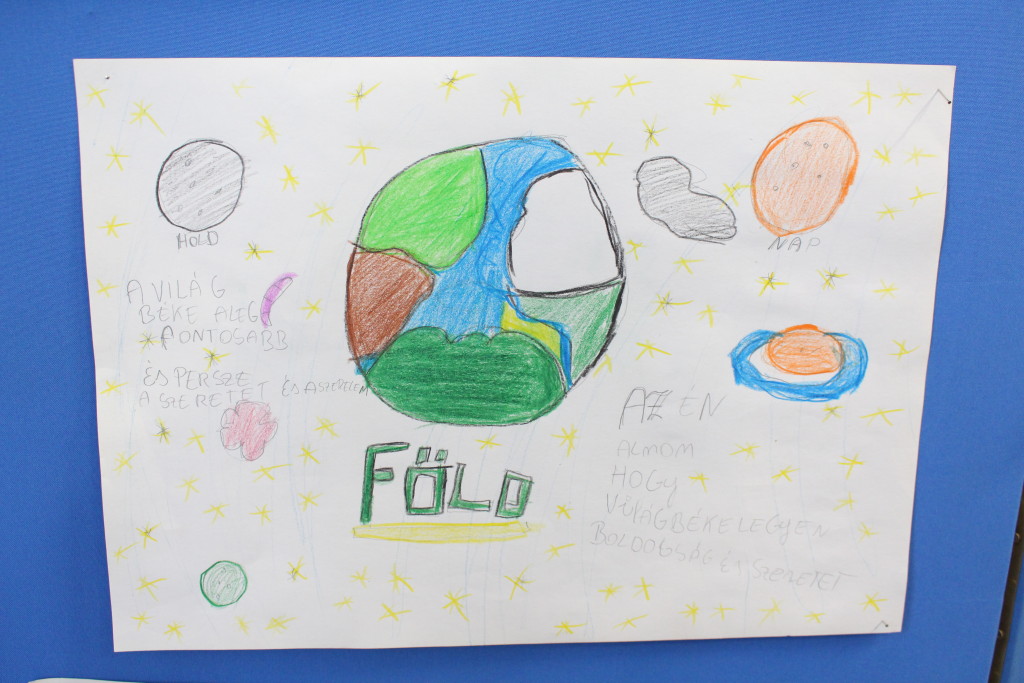 HOLD
NAP
A VILÁG
BÉKE ALEG
FONTOSABB
ÉS PERSZE
A SZERETET ÉS A SZERELEM
FÖLD
AZ ÉN
ALMOM
HOGY
VILÁGBÉKE LEGYEN
BOLDOGSÁG ÉS SZERETET